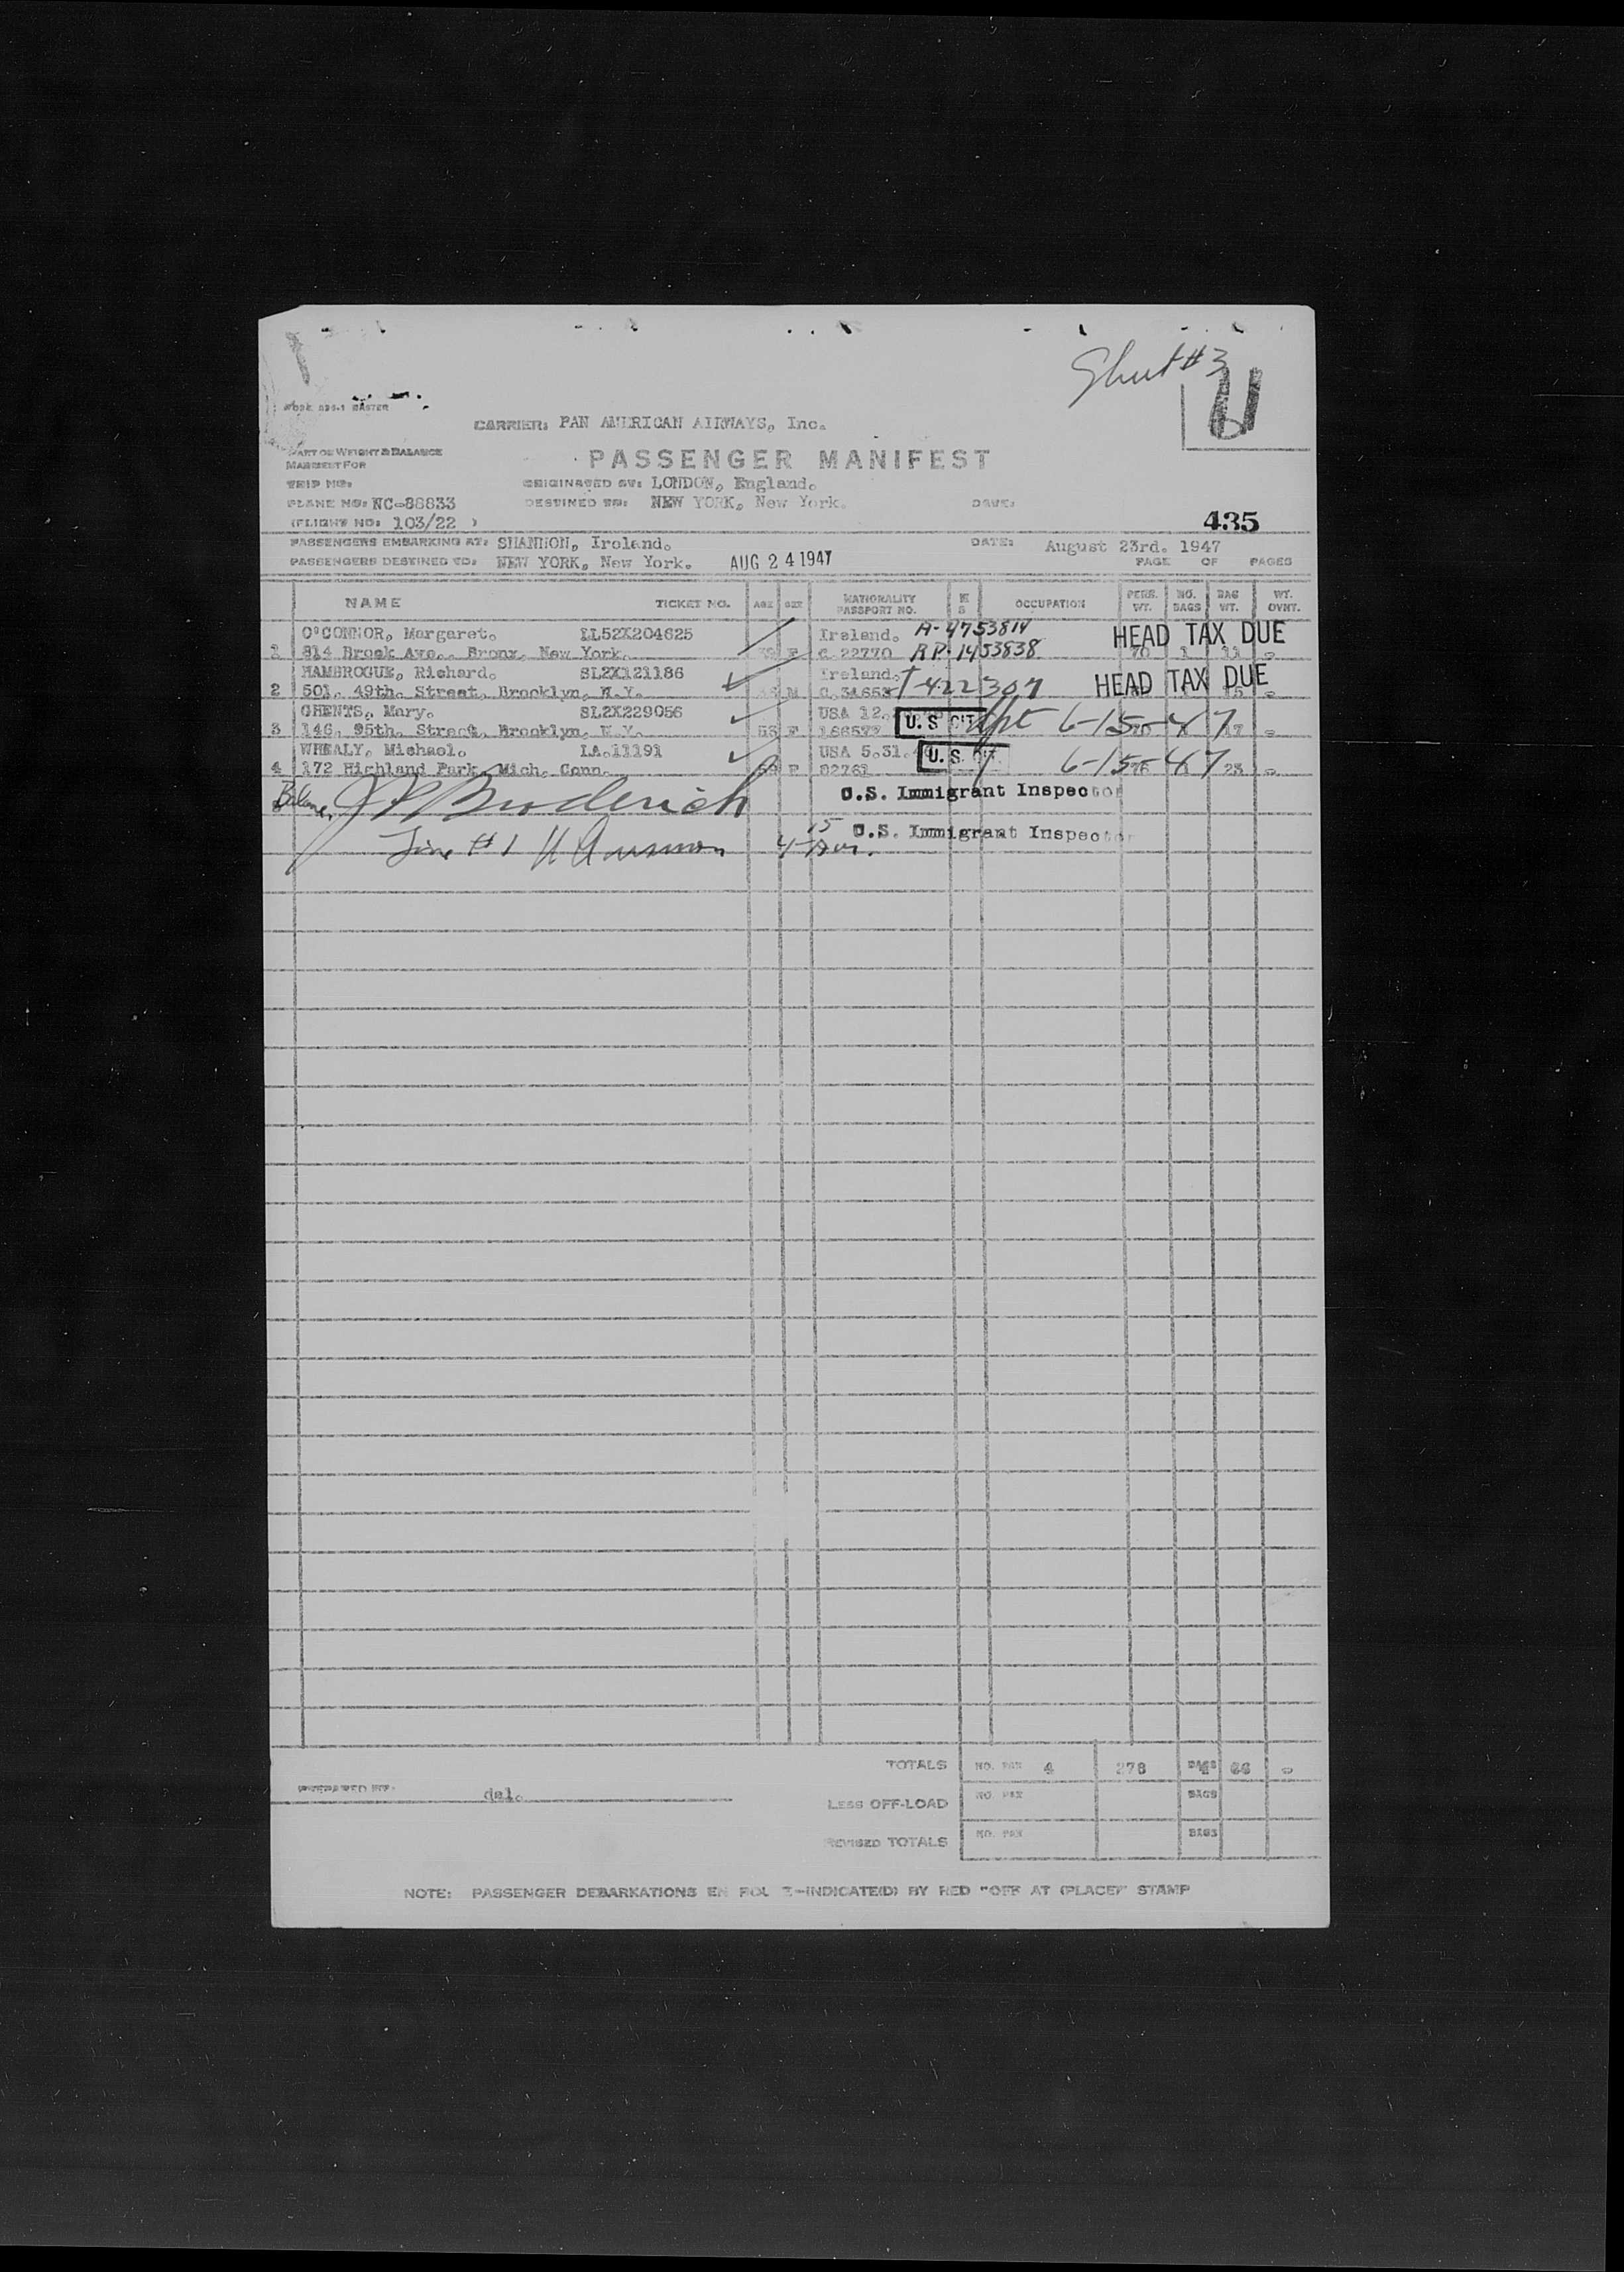 #3
CARRIER: PAN AMERICAN AIRWAYS, Inc.
PART OF WEIGHT & BALANCE
MANIFEST FOR
PASSENGER MANIFEST
TRIP NO:
ORIGINATED AT: LONDON, England.
PLANE NO: NC-88833
DESTINED TO: NEW YORK, New York.
DATE:
(FLIGHT NO: 103/22 )
435
PASSENGERS EMBARKING AT: SHANNON, Ireland.
DATE: August 23rd. 1947
PASSENGERS DESTINED TO: NEW YORK, New York. AUG 24 1947
PAGE OF PAGES
NAME TICKET NO. AGE SEX NATIONALITY PASSPORT NO. M S OCCUPATION PERS. WT. NO. BAGS BAG WT. WT. OVHT.
O'CONNOR, Margaret. LL52X204625 Ireland. A-4753814 HEAD TAX DUE
1 814 Brook Ave. Bronx, New York. F C.22770 RP-1453838 70 1 11
HAMBROGUE, Richard. SL2X121186 Ireland. T-422307 HEAD TAX DUE
2 501, 49th. Street, Brooklyn, N.Y. M
GHENTS, Mary. SL2X229056 USA 12. U.S CIT 6-15-47
3 146, 95th. Street, Brooklyn, N.Y. F 17
WHEALY, Michael. LA.11191 USA 5.31. U.S. CIT. 6-15-47
4 172 Highland Park, Mich. Conn. F 82761 23
Balance, Broderick U.S. Immigrant Inspector
Line #1 U.S. Immigrant Inspector
TOTALS NO. PAX 4 278 BAGS 66
PREPARED BY: del.
LESS OFF-LOAD NO. PAX BAGS
REVISED TOTALS NO. PAX BAGS
NOTE: PASSENGER DEBARKATIONS EN INDICATE(D) BY RED "OFF AT (PLACE)" STAMP